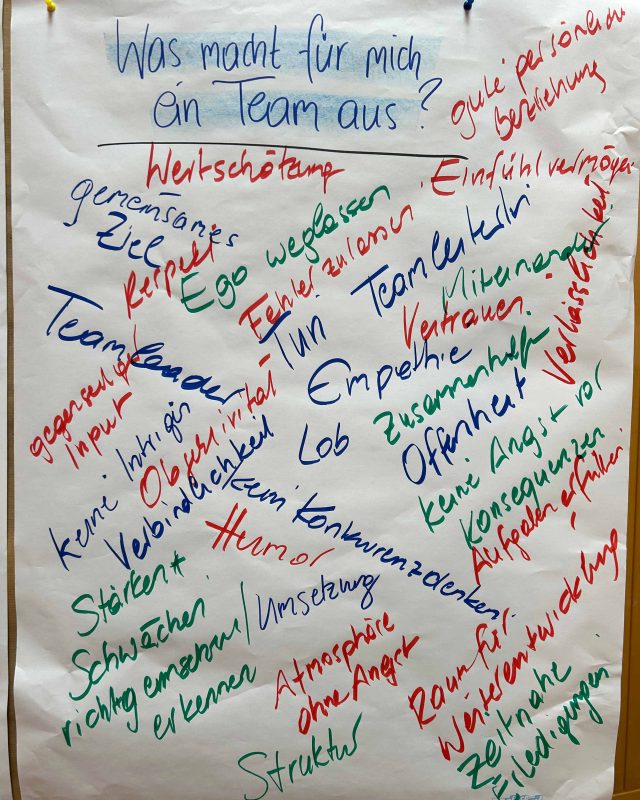 Was macht für mich
ein Team aus?
gute persönliche
Beziehung
Wertschätzung
Einfühlvermögen
gemeinsames
Ziel
Respekt
Ego weglassen
Fehler zulassen
Teamleader
Tun
Miteinander
Vertrauen
Verlässlichkeit
gegenseitiger
Input
Empathie
Zusammenhelfen
Offenheit
Lob
keine Intrigen
Objektivität
Verbindlichkeit
kein Konkurenzdenken
keine Angst vor
Konsequenzen
Aufgaben erfüllen
Humor
Stärken +
Schwächen
richtig
erkennen
Umsetzung
Atmosphäre
ohne Angst
Raum für
Weiterentwicklung
Zeitnahe
Erledigungen
Struktur